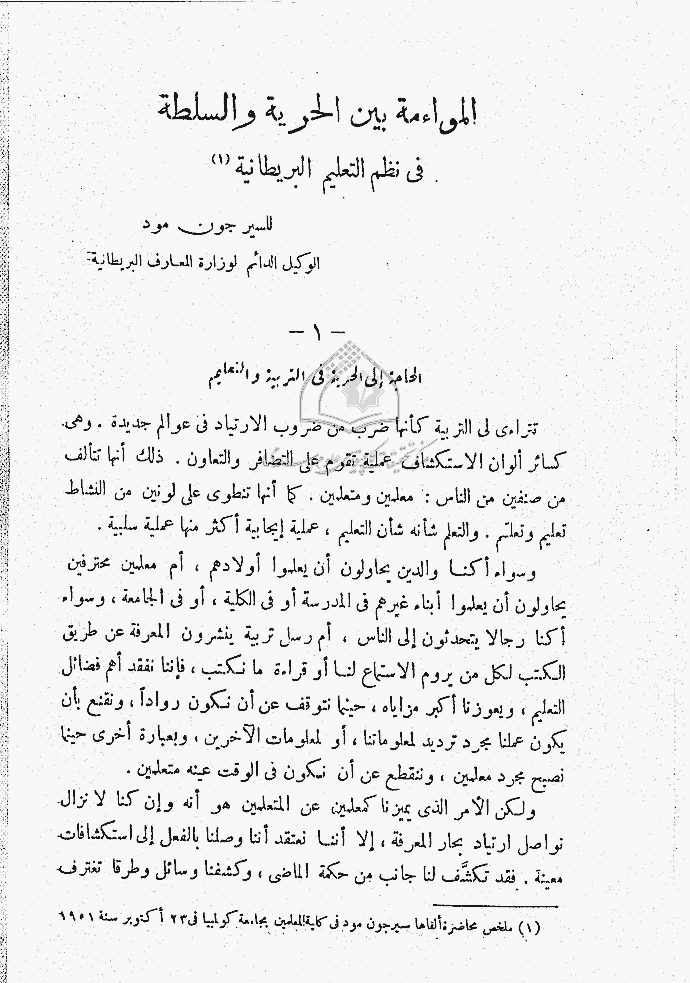 المواءمة بين الحرية والسلطة
فى نظم التعليم البريطانية (١)
للسير جون مود
الوكيل الدائم لوزارة المعارف البريطانية
— ١ —
الحاجة إلى الحرية فى التربية والتعليم
تتراءى لى التربية كأنها ضرب من ضروب الارتياد فى عوالم جديدة . وهى
كسائر ألوان الاستكشاف عملية تقوم على التضافر والتعاون . ذلك أنها تتألف
من صنفين من الناس : معلمين ومتعلمين . كما أنها تنطوى على لونين من النشاط
تعليم وتعلم . والتعلم شأنه شأن التعليم ، عملية إيجابية أكثر منها عملية سلبية .
وسواء أكنا والدين يحاولون أن يعلموا أولادهم ، أم معلمين محترفين
يحاولون أن يعلموا أبناء غيرهم فى المدرسة أو فى الكلية ، أو فى الجامعة ، وسواء
أكنا رجالا يتحدثون إلى الناس ، أم رسل تربية ينشرون المعرفة عن طريق
الكتب لكل من يروم الاستماع لنا أو قراءة ما نكتب ، فإننا نفقد أهم فضائل
التعليم ، ويعوزنا أكبر مزاياه ، حينما نتوقف عن أن نكون رواداً ، ونقنع بأن
يكون عملنا مجرد ترديد لمعلوماتنا ، أو لمعلومات الآخرين ، وبعبارة أخرى حينما
نصبح مجرد معلمين ، وننقطع عن أن نكون فى الوقت عينه متعلمين .
ولكن الأمر الذى يميزنا كمعلمين عن المتعلمين هو أنه وإن كنا لا نزال
نواصل ارتياد بحار المعرفة ، إلا أننا نعتقد أننا وصلنا بالفعل إلى استكشافات
معينة . فقد تكشَّف لنا جانب من حكمة الماضى ، وكشفنا وسائل وطرقا تغترف
(١) ملخص محاضرة ألقاها سيرجون مود فى كلية المعلمين بجامعة كولمبيا فى ٢٣ أكتوبر سنة ١٩٥١